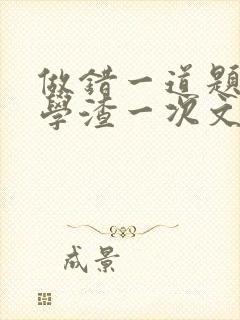 做錯一道題
學渣一次文
成景